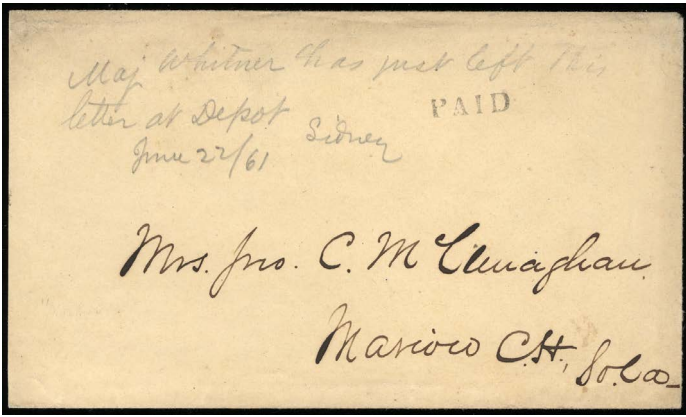 Maj Whitner has just left this
letter at Depot
PAID
Sidney
June 22/61
Mrs. Jno. C. McClenaghan.
Marion C.H., So. Ca-